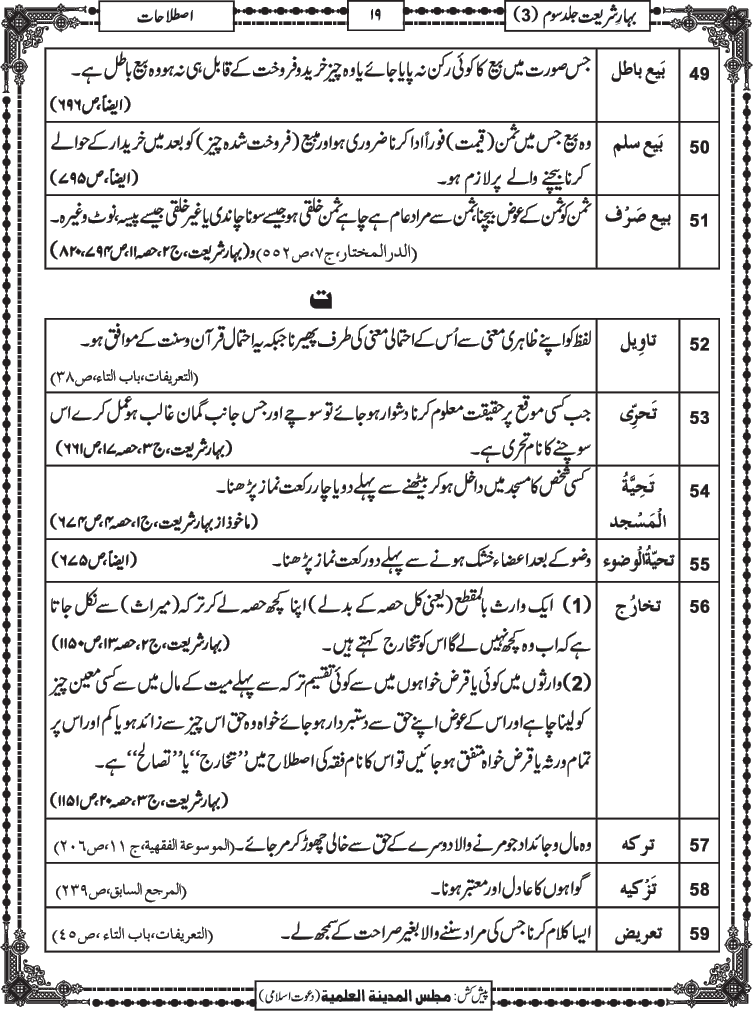 بہارِ شریعت جلد سوم (3)
۱۹
اصطلاحات
49 بَیع باطل جس صورت میں بیع کا کوئی رکن نہ پایا جائے یا وہ چیز خرید و فروخت کے قابل ہی نہ ہو وہ بیع باطل ہے۔
(ایضاً،ص۶۹۶)
50 بَیع سلم وہ بیع جس میں ثمن (قیمت) فوراً ادا کرنا ضروری ہو اور مبیع (فروخت شدہ چیز) کو بعد میں خریدار کے حوالے
کرنا بیچنے والے پر لازم ہو۔ (ایضاً،ص۷۹۵)
51 بیع صَرْف ثمن کو ثمن کے عوض بیچنا، ثمن سے مراد عام ہے چاہے ثمن خلقی ہو جیسے سونا چاندی یا غیر خلقی جیسے پیسہ، نوٹ وغیرہ۔
(الدرالمختار،ج۷،ص۵۵۲) و (بہار شریعت،ج۲،حصہ۱۱،ص۷۹۴،۸۲۰)
ت
52 تاوِیل لفظ کو اپنے ظاہری معنی سے اُس کے احتمالی معنی کی طرف پھیرنا جبکہ یہ احتمال قرآن و سنت کے موافق ہو۔
(التعریفات،باب التاء،ص۳۸)
53 تَحرِّی جب کسی موقع پر حقیقت معلوم کرنا دشوار ہو جائے تو سوچے اور جس جانب گمان غالب ہو عمل کرے اس
سوچنے کا نام تحری ہے۔ (بہار شریعت،ج۳،حصہ۱۷،ص۶۶۱)
54 تَحِیَّۃُ کسی شخص کا مسجد میں داخل ہو کر بیٹھنے سے پہلے دو یا چار رکعت نماز پڑھنا۔
الْمَسْجد (ماخوذ از بہار شریعت،ج۱،حصہ۴،ص۶۷۴)
55 تحیّۃُ الْوضوء وضو کے بعد اعضاء خشک ہونے سے پہلے دو رکعت نماز پڑھنا۔ (ایضاً،ص۶۷۵)
56 تخارُج (1) ایک وارث بالمقطع (یعنی کل حصہ کے بدلے) اپنا کچھ حصہ لے کر ترکہ (میراث) سے نکل جاتا
ہے کہ اب وہ کچھ نہیں لے گا اس کو تخارج کہتے ہیں۔ (بہار شریعت،ج۲،حصہ۱۳،ص۱۱۵۰)
(2) وارثوں میں کوئی یا قرض خواہوں میں سے کوئی تقسیم ترکہ سے پہلے میت کے مال میں سے کسی معین چیز
کو لینا چاہے اور اس کے عوض اپنے حق سے دستبردار ہو جائے خواہ وہ حق اس چیز سے زائد ہو یا کم اور اس پر
تمام ورثہ یا قرض خواہ متفق ہو جائیں تو اس کا نام فقہ کی اصطلاح میں ”تخارج“ یا ”تصالح“ ہے۔
(بہار شریعت،ج۳،حصہ۲۰،ص۱۱۵۱)
57 ترکہ وہ مال و جائداد جو مرنے والا دوسرے کے حق سے خالی چھوڑ کر مر جائے۔ (الموسوعة الفقهية،ج ۱۱،ص۲۰۶)
58 تَزْکیہ گواہوں کا عادل اور معتبر ہونا۔ (المرجع السابق،ص۲۳۹)
59 تعریض ایسا کلام کرنا جس کی مراد سننے والا بغیر صراحت کے سمجھ لے۔ (التعریفات،باب التاء،ص۴۵)
پیش کش: مجلس المدینة العلمیة (دعوت اسلامی)